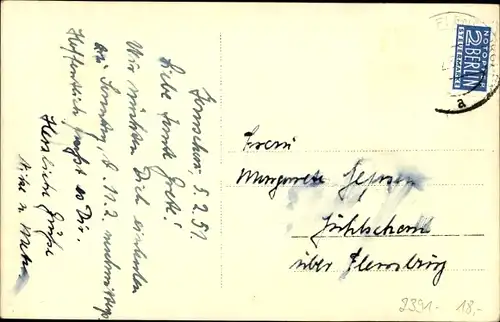 5.2.51.
Liebe Tante Grete!
Wir möchten Dich einladen
zu Sonntag, d. 11.2. nachmittags
Hoffentlich paßt es Dir.
Herzliche Grüße
Frau
Margarete Jepsen
über Flensburg
NOTOPFER
2 BERLIN
STEUERMARKE
a
2391- 18,-